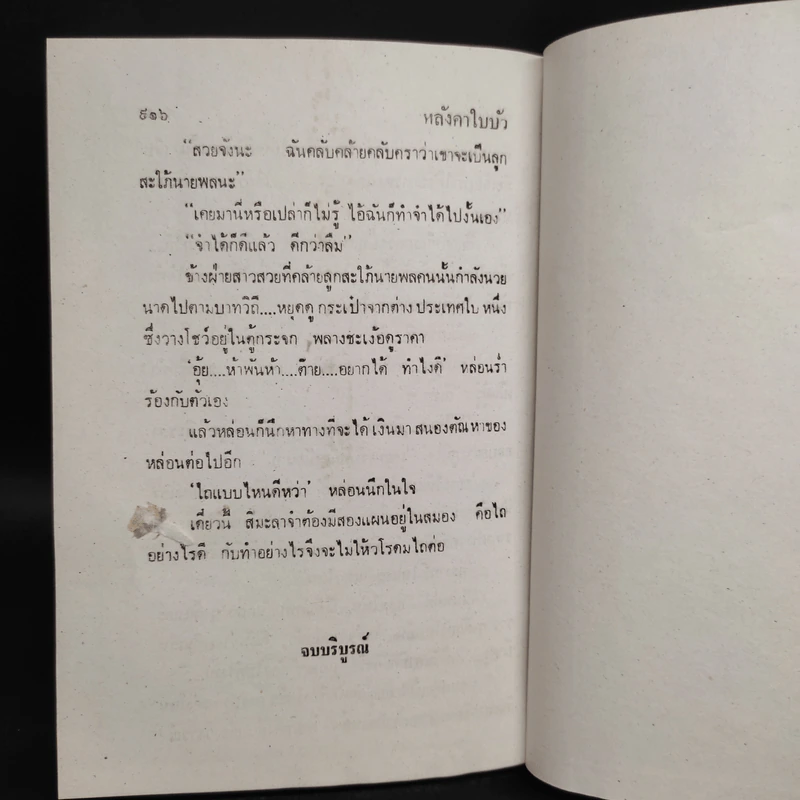 ๕๑๖
หลังคาใบบัว
“สวยจังนะ ฉันคลับคล้ายคลับคราว่าเขาจะเป็นลูก
สะใภ้นายพลนะ”
“เคยมานี่หรือเปล่าก็ไม่รู้ ไอ้ฉันก็ทำจำได้ไปงั้นเอง”
“จำได้ก็ดีแล้ว ดีกว่าลืม”
ข้างฝ่ายสาวสวยที่คล้ายลูกสะใภ้นายพลคนนั้นกำลังนวย
นาดไปตามบาทวิถี....หยุดดู กระเป๋าจากต่าง ประเทศใบ หนึ่ง
ซึ่งวางโชว์อยู่ในตู้กระจก พลางชะเง้อดูราคา
‘อุ้ย....ห้าพันห้า....ต๊าย....อยากได้ ทำไงดี’ หล่อนร่ำ
ร้องกับตัวเอง
แล้วหล่อนก็นึกหาทางที่จะได้ เงินมา สนองตัณหาของ
หล่อนต่อไปอีก
‘ไถแบบไหนดีหว่า’ หล่อนนึกในใจ
เดี๋ยวนี้ สิมะลาจำต้องมีสองแผนอยู่ในสมอง คือไถ
อย่างไรดี กับทำอย่างไรจึงจะไม่ให้วโรดมไถต่อ
จบบริบูรณ์